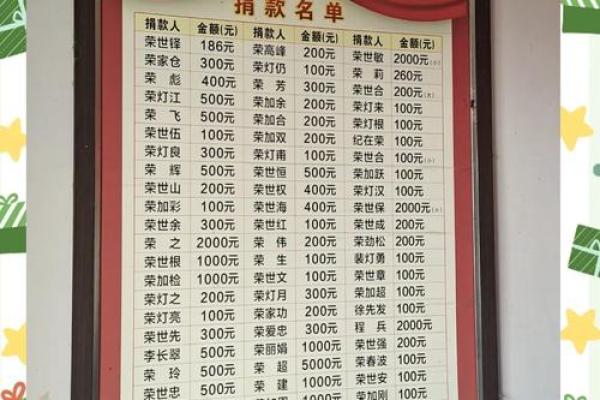 捐款名单
捐款人 金额(元) 捐款人 金额(元) 捐款人 金额(元)
荣世铎 186元 荣高峰 200元 荣世敏 2000元(小)
荣家仓 300元 荣灯仍 100元 荣莉 260元
荣彪 400元 荣芳 300元 荣世合 200元(大)
荣灯江 500元 荣加余 200元 荣灯来 100元
荣飞 500元 荣加合 200元 荣灯根 100元
荣世伍 100元 荣加双 200元 纪在荣 100元
荣灯良 300元 荣灯甫 100元 荣世合 100元(小)
荣辉 500元 荣世恒 500元 荣加跃 100元
荣世山 200元 荣世权 400元 荣灯汉 100元
荣加彩 100元 荣世海 400元 荣世保 2000元
荣世余 300元 荣世红 100元 荣世成 200元
荣之 2000元 荣伟 200元 荣劲松 200元
荣世根 1000元 荣生 100元 裴灯勇 100元
荣加检 1000元 荣世文 100元 荣世章 100元
荣灯之 200元 荣灯月 300元 荣加超 100元
荣灯亮 100元 荣家功 200元 徐先发 100元
荣世先 300元 荣爱忠 300元 程兵 2000元
李长翠 500元 荣丽娟 1000元 荣世强 200元
荣玲 500元 荣超 5000元 荣春波 100元
荣世忠 500元 荣建 1000元 荣世安 100元
荣加刚 100元